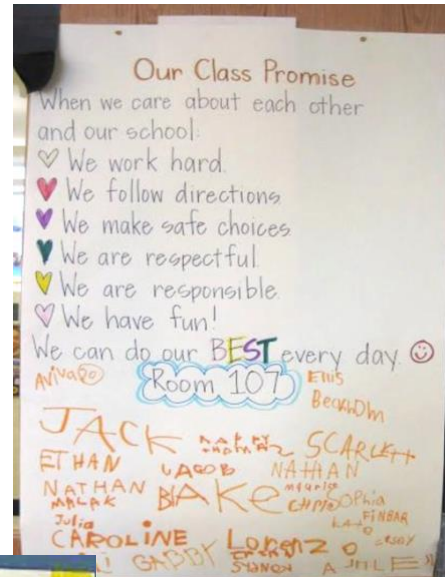 Our Class Promise
When we care about each other
and our school:
We work hard.
We follow directions.
We make safe choices.
We are respectful.
We are responsible.
We have fun!
We can do our BEST every day.
Room 107
Ellis
JACK
SCARLETT
ETHAN
JACOB
NATHAN
NATHAN
MALAK
BlAKe
SOPhia
FiNBAR
Julia
CAROLINE
Lorenzo
GABBY